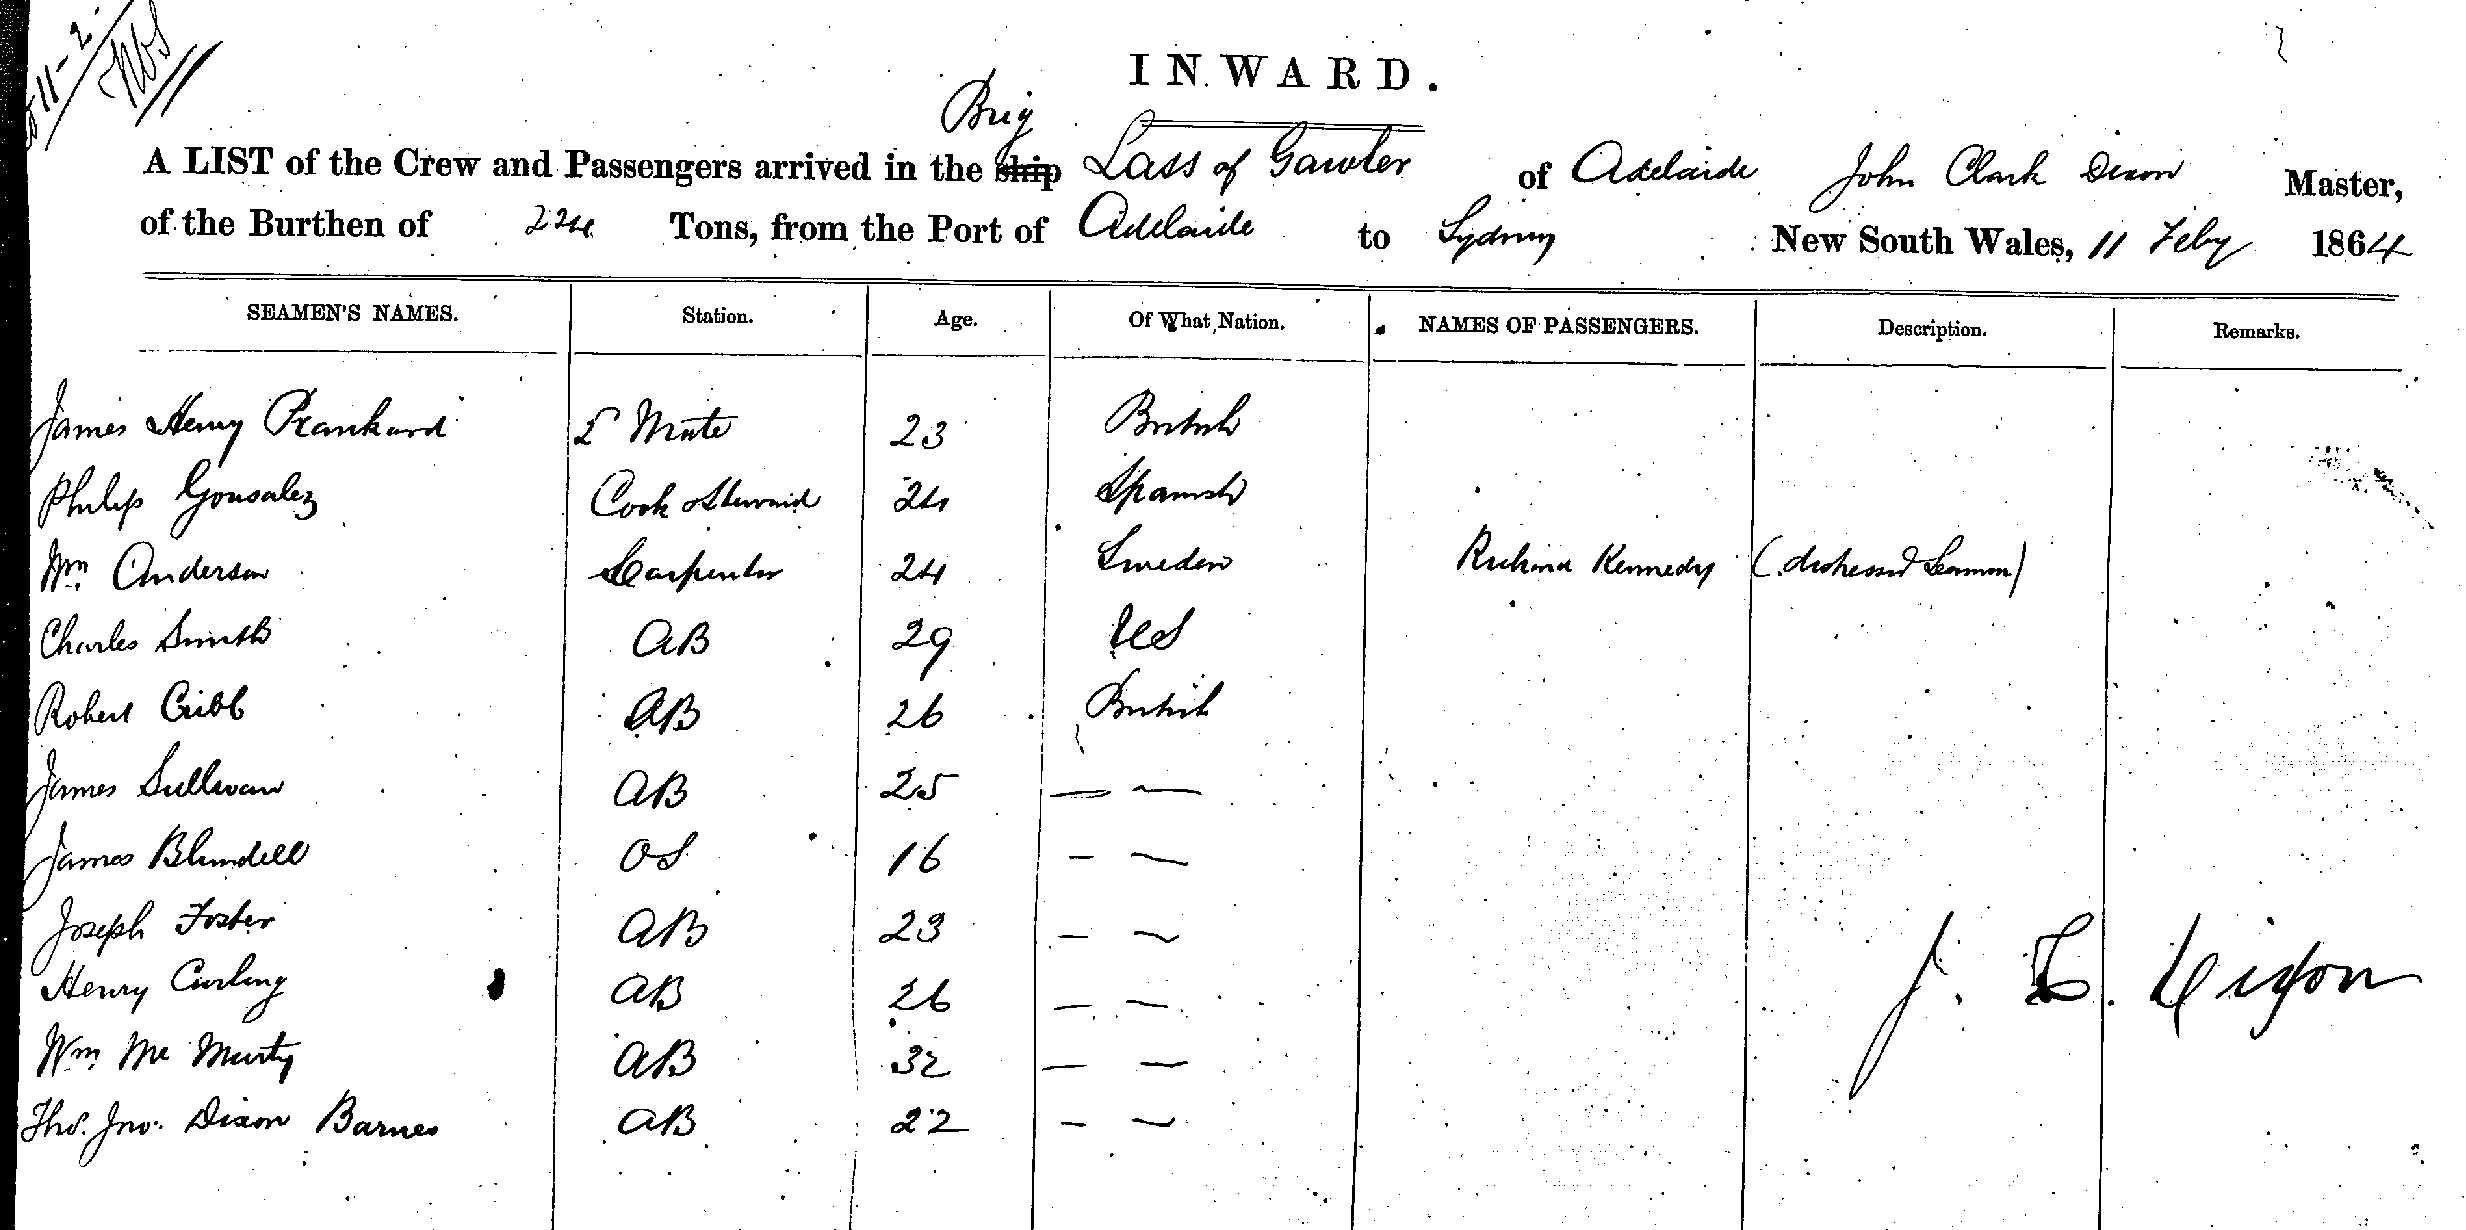 11-2
INWARD.
Brig
A LIST of the Crew and Passengers arrived in the ship Lass of Gawler of Adelaide John Clark Dixon Master,
of the Burthen of 224 Tons, from the Port of Adelaide to Sydney New South Wales, 11 Feby 1864
SEAMEN'S NAMES. Station. Age. Of What Nation. NAMES OF PASSENGERS. Description. Remarks.
James Henry Prankard Mate 23 British
Philip Gonsalez Cook & Steward 24 Spanish
Wm Anderson Carpenter 24 Sweden Richard Kennedy (distressed Seaman)
Charles Smith AB 29 US
Robert Cribb AB 26 British
James Sullivan AB 25 — —
James Blundell OS 16 — —
Joseph Foster AB 23 — —
Henry Curling AB 26 — —
Wm Mc Murty AB 32 — —
Tho. Jno. Dixon Barnes AB 22 — —
J. C. Dixon